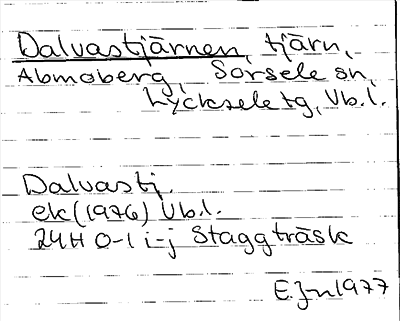 Dalvastjärnen, tjärn,
Abmoberg, Sorsele sn,
Lycksele tg, Vb.l.
Dalvastj.
ek (1976) Vb.l.
24H 0-1 i-j Staggträsk
E.J-n 1977